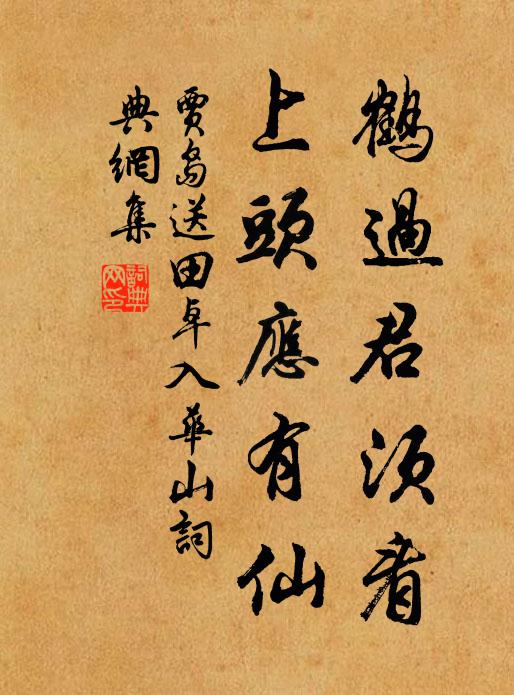 鶴過君須看
上頭應有仙
賈島送田卓入華山詞
典網集
詞典
网印